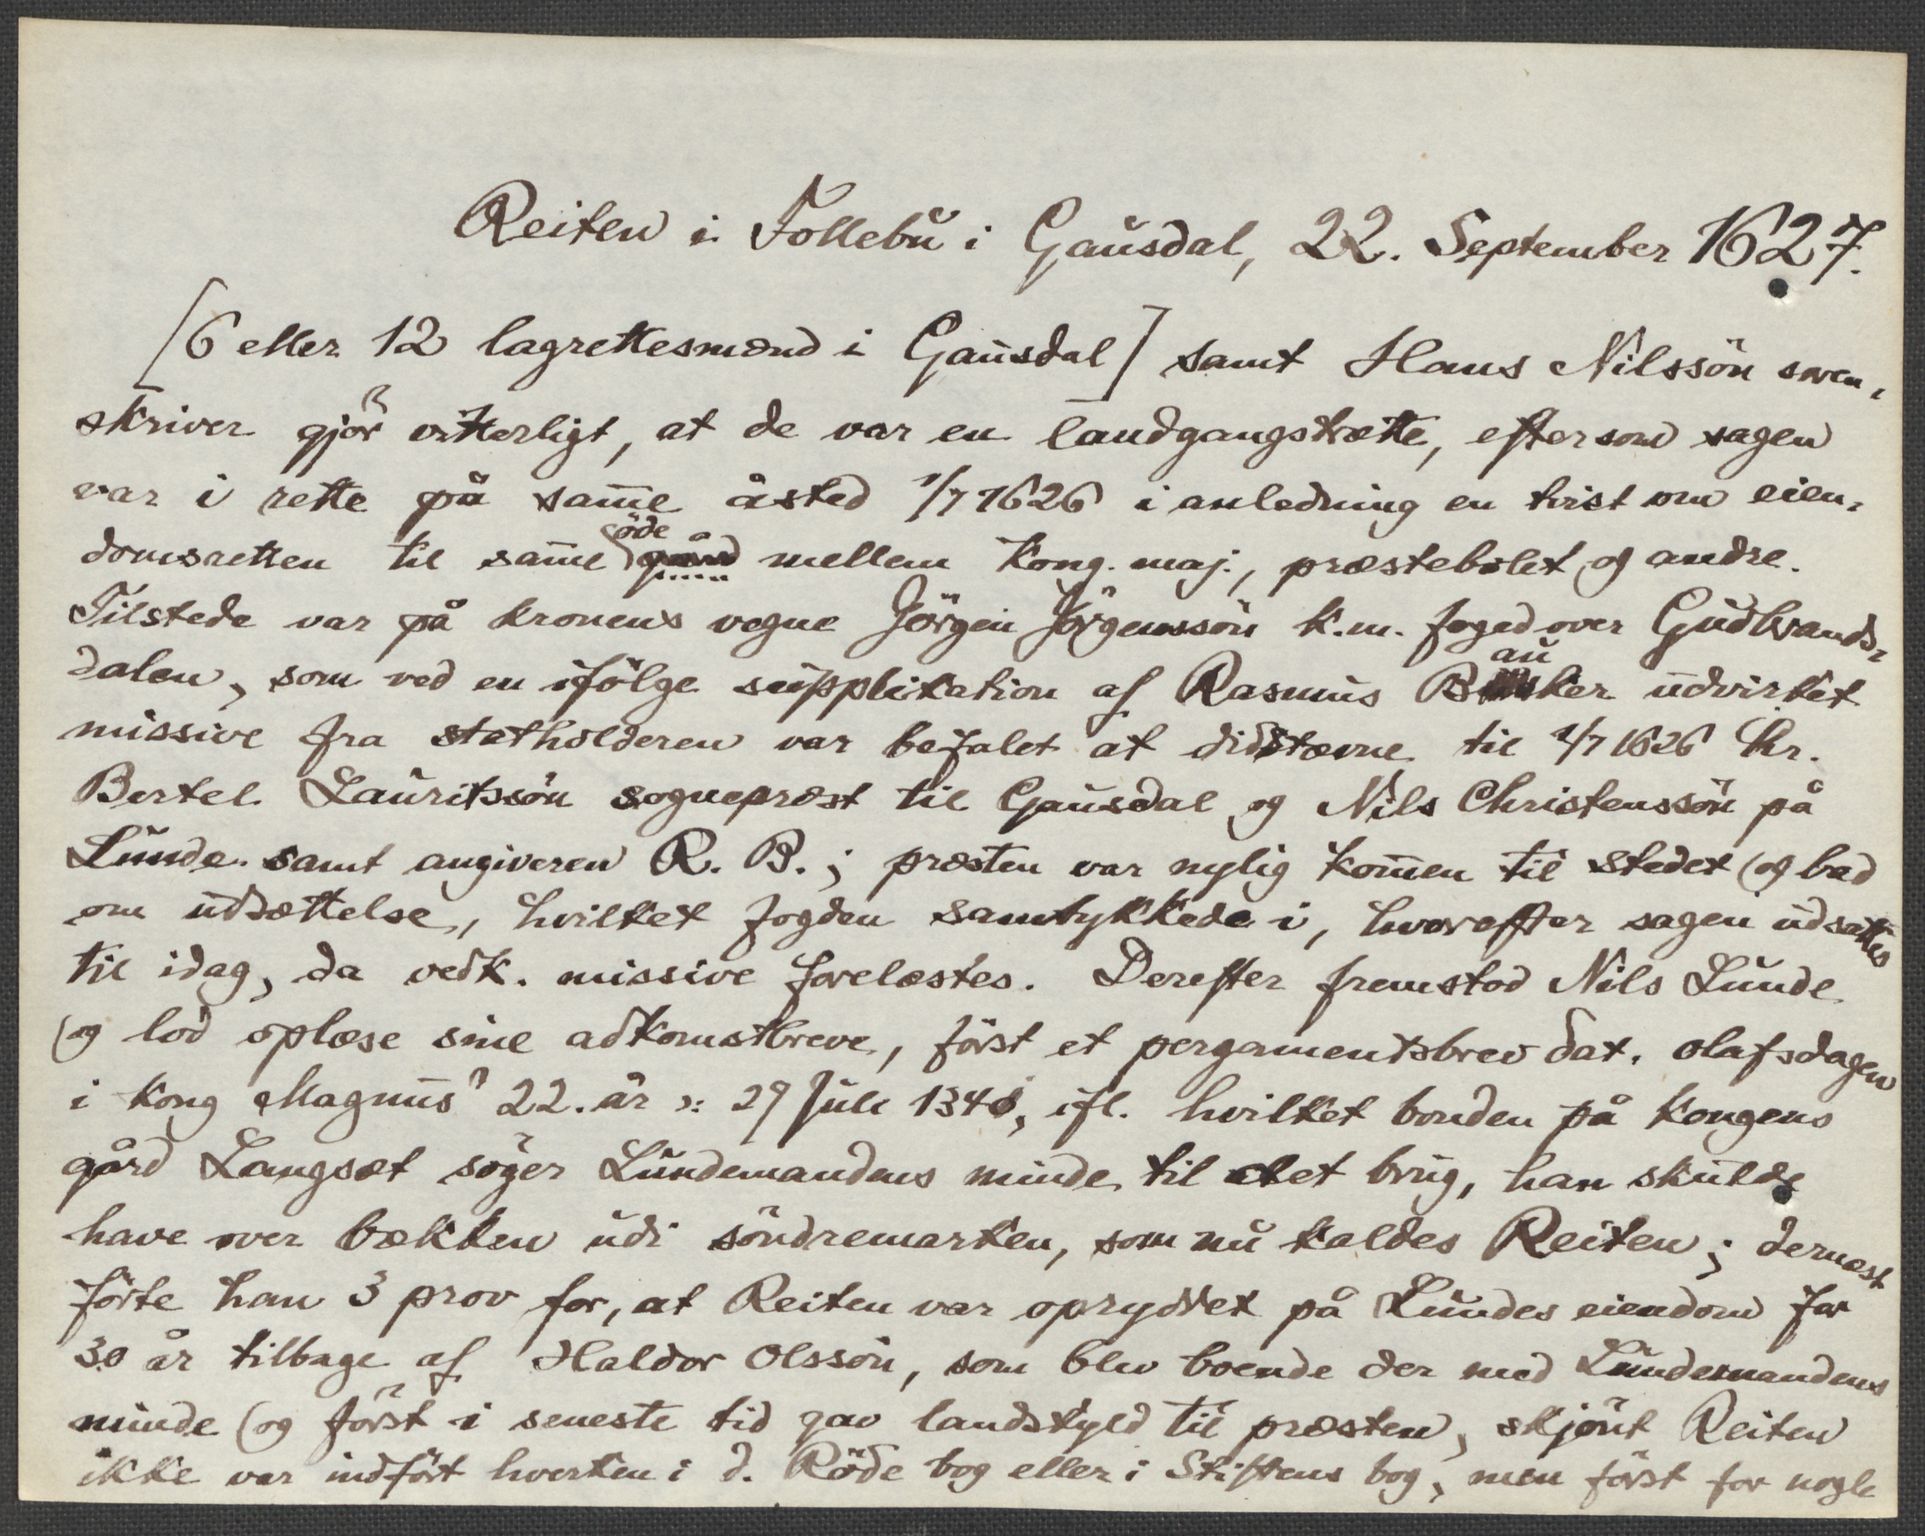 Reiten i Follebu i Gausdal, 22. September 1627.
[6 eller 12 lagrettesmænd i Gausdal] samt Hans Nilssön soren-
skriver gjör vitterligt, at de var en landgangstrætte, eftersom sagen
var i rette på samme åsted 1/7 1626 i anledning en tvist om eien-
domsretten til samme öde gård mellem Kong. maj., præstebolet og andre.
Tilstede var på kronens vegne Jörgen Jörgenssön k.m. foged over Gudbrands-
dalen, som ved en ifölge supplikation af Rasmus Bauker udvirket
missive fra statholderen var befalet at didstævne til 1/7 1626 hr.
Bertel Lauritssön sognepræst til Gausdal og Nils Christenssön på
Lunde samt angiveren R. B.; præsten var nylig kommen til stedet og bad
om udsættelse, hvilket fogden samtykkede i, hvorefter sagen udsattes
til idag, da vedk. missive forelæstes. Derefter fremstod Nils Lunde
og lod oplæse sine adkomstbreve, först et pergamentsbrev dat. olafsdagen
i kong Magnus' 22. år ɔ: 29 Juli 1340, ifl. hvilket bonden på kongens
gård Langsæt söger Lundemandens minde til det brug, han skulde
have over bækken udi söndremarken, som nu kaldes Reiten; dernæst
förte han 3 prov for, at Reiten var opryddet på Lundes eiendom for
30 år tilbage af Haldor Olssön, som blev boende der med Lundemandens
minde og först i seneste tid gav landskyld til præsten, skjönt Reiten
ikke var indfört hverken i d. Röde bog eller i Stiftens bog, men först for nogle